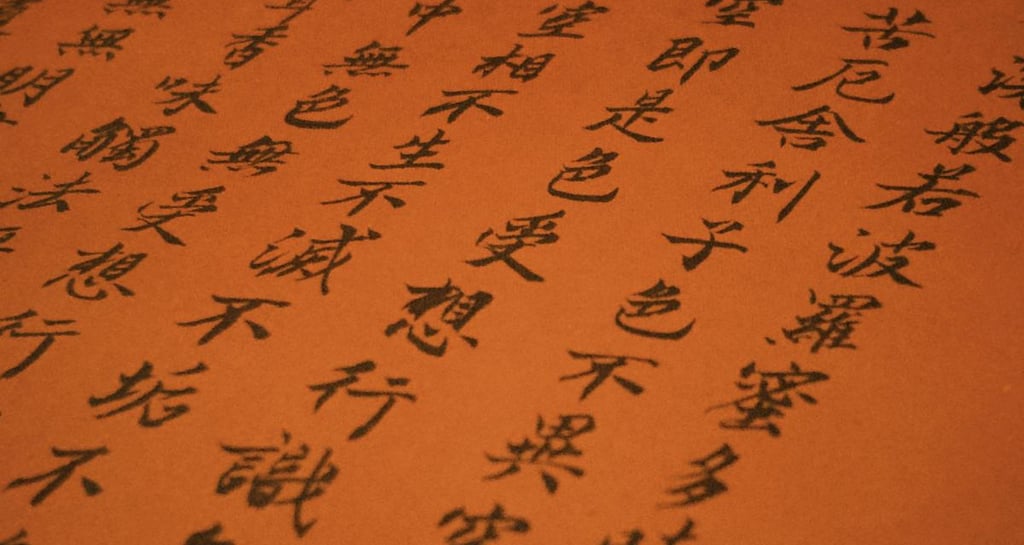 深般若波羅蜜多
苦厄舍利子色不異空
空即是色受想行識
空相不生不滅不垢不
中無色無受想行
身香味觸法
無無明